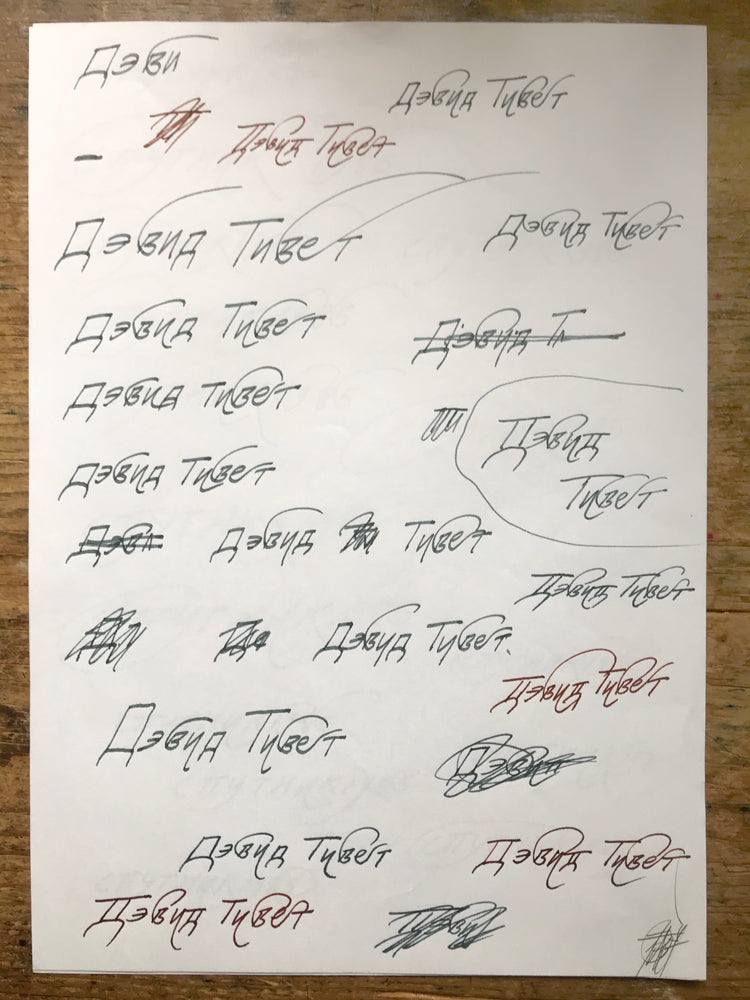 Дэви
Дэвид Тивет
Дэвид Тивет
Дэвид Тивет
Дэвид Тивет
Дэвид Тивет
Дэвид Т
Дэвид Тивет
Дэвид
Тивет
Дэвид Тивет
Дэви Дэвид Тивет
Дэвид Тивет
Дэвид Тивет.
Дэвид Тивет
Дэвид Тивет
Дэвид Тивет
Дэвид Тивет
Дэвид Тивет